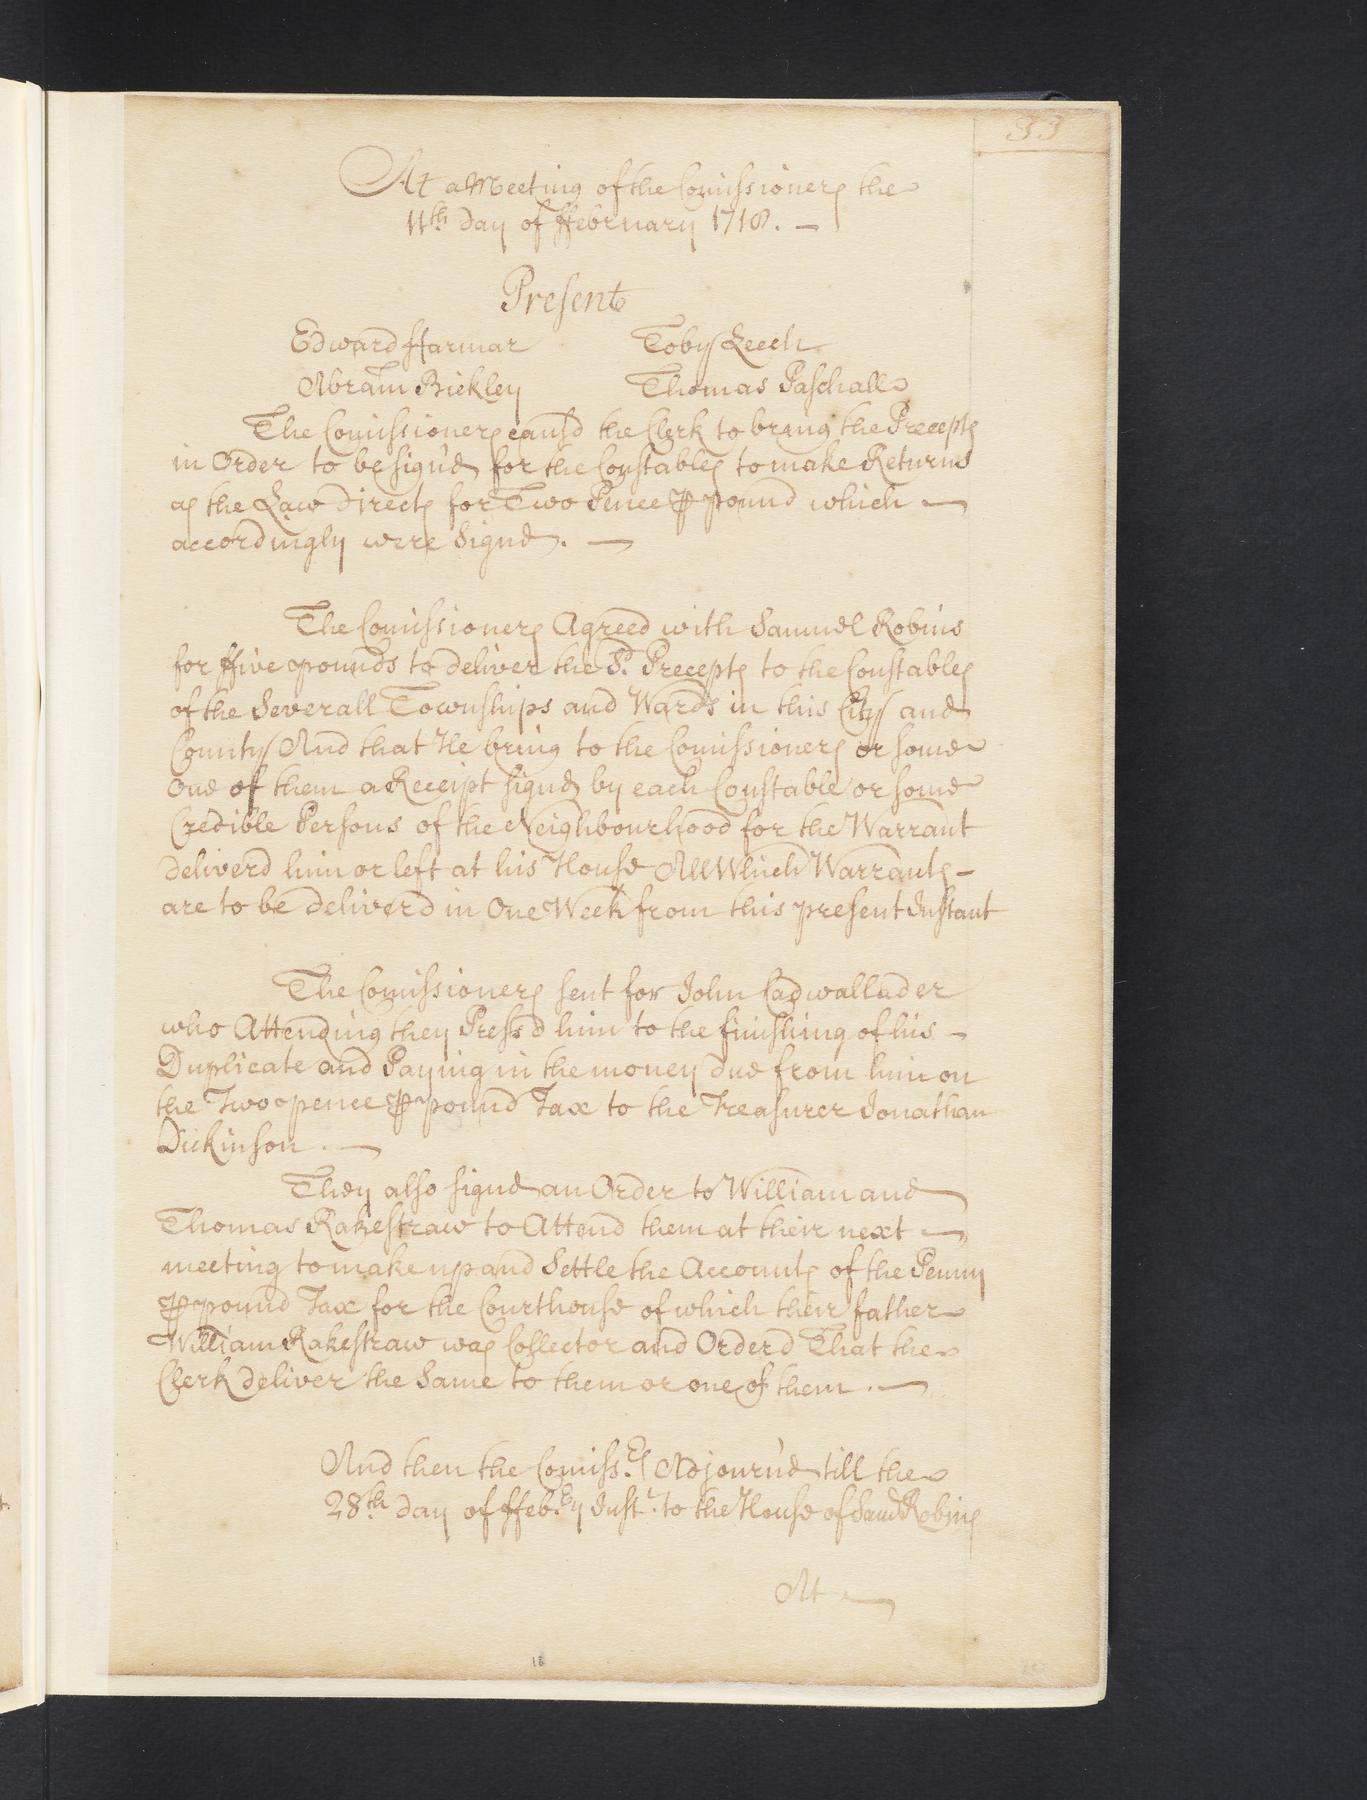 33
At a Meeting of the Comissioners the
11th day of ffebruary 1718. —
Present
Edward ffarmar Toby Leech
Abram Bickley Thomas Paschall
The Comissioners caus'd the Clerk to bring the Precepts
in Order to be sign'd for the Constables to make Returns
as the Law directs for Two Pence ⅌ pound which —
accordingly were Signd. —
The Comissioners Agreed with Samuel Robins
for ffive pounds to deliver the Sd. Precepts to the Constables
of the Severall Townships and Wards in this City and
County And that He bring to the Comissioners or some
one of them a Receipt signd by each Constable or some
Credible Persons of the Neighbourhood for the Warrant
deliverd him or left at his House All Which Warrants —
are to be deliverd in One Week from this present Instant
The Comissioners sent for John Cadwallader
who Attending they Press'd him to the finishing of his —
Duplicate and Paying in the money due from him on
the Two pence ⅌ pound Tax to the Treasurer Jonathan
Dickinson. —
They also signd an Order to William and
Thomas Rakestraw to Attend them at their next —
meeting to make up and Settle the Accounts of the Penny
⅌ pound Tax for the Courthouse of which their father
William Rakestraw was Collector and Orderd That the
Clerk deliver the Same to them or one of them. —
And then the Comiss.rs Adjourn'd till the
28th day of ffeb.ry Inst.t to the House of Saml Robins
At —
18